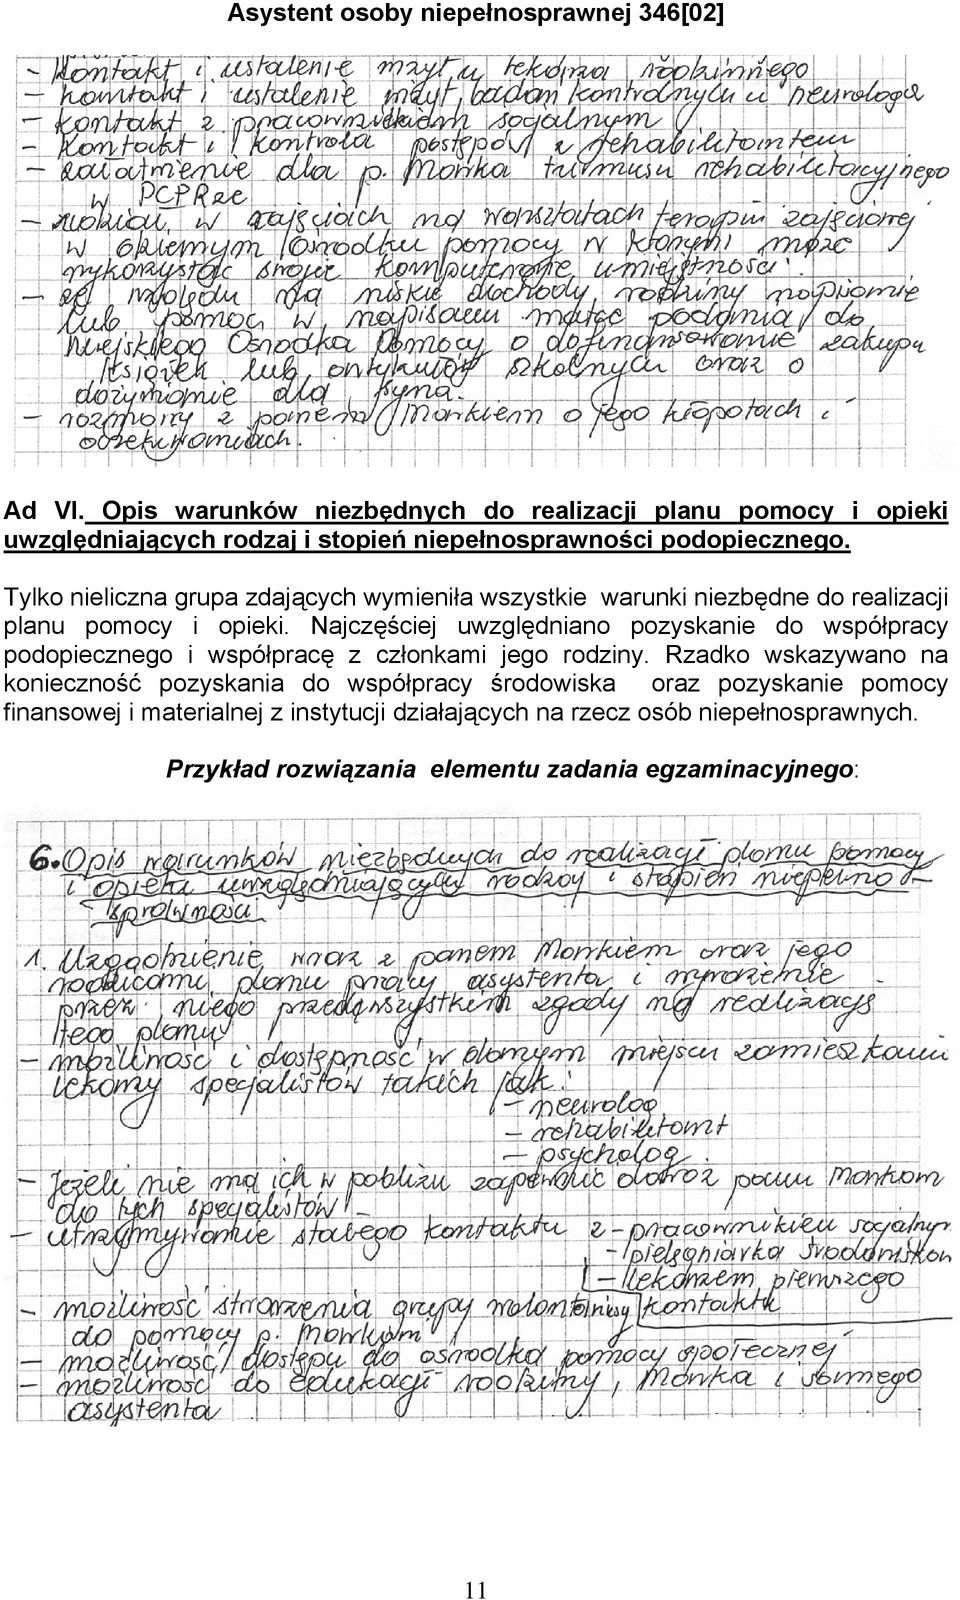 Asystent osoby niepełnosprawnej 346[02]
- Kontakt i ustalenie wizyt u lekarza rodzinnego
- kontakt i ustalenie wizyt, badań kontrolnych u neurologa
- kontakt z pracownikiem socjalnym
- Kontakt i kontrola postępów z rehabilitantem
- załatwienie dla p. Marka turnusu rehabilitacyjnego
w PCPRze
- udział w zajęciach na warsztatach terapii zajęciowej
w okiemym Ośrodku pomocy w którym może
wykorzystać swoje komputerowe umiejętności.
- ze względu na niskie dochody rodziny napisanie
lub pomoc w napisaniu matce podania do
Miejskiego Ośrodka Pomocy o dofinansowanie zakupu
książek lub artykułów szkolnych oraz o
dożywianie dla syna.
- rozmowy z panem Markiem o jego kłopotach i
oczekiwaniach.
Ad VI. Opis warunków niezbędnych do realizacji planu pomocy i opieki
uwzględniających rodzaj i stopień niepełnosprawności podopiecznego.
Tylko nieliczna grupa zdających wymieniła wszystkie warunki niezbędne do realizacji
planu pomocy i opieki. Najczęściej uwzględniano pozyskanie do współpracy
podopiecznego i współpracę z członkami jego rodziny. Rzadko wskazywano na
konieczność pozyskania do współpracy środowiska oraz pozyskanie pomocy
finansowej i materialnej z instytucji działających na rzecz osób niepełnosprawnych.
Przykład rozwiązania elementu zadania egzaminacyjnego:
6. Opis warunków niezbędnych do realizacji planu pomocy
i opieka uwzględniający rodzaj i stopień niepełno-
sprawności.
1. Uzgodnienie wraz z panem Markiem oraz jego
rodzicami planu pracy asystenta i wyrażenie
przez niego przede wszystkim zgody na realizację
tego planu
- możliwość i dostępność w danym miejscu zamieszkania
lekarzy specjalistów takich jak:
- neurolog
- rehabilitant
- psycholog.
- Jeżeli nie ma ich w pobliżu zapewnić dowóz panu Markom
do tych specjalistów
- utrzymywanie stałego kontaktu z - pracownikiem socjalnym
- pielęgniarka środowiskow
- lekarzem pierwszego
kontaktu
- możliwość stworzenia grupy wolontariuszy
do pomocy p. Markom
- możliwość dostępu do ośrodka pomocy społecznej
- możliwość do edukacji rodziny, Marka i samego
asystenta
11